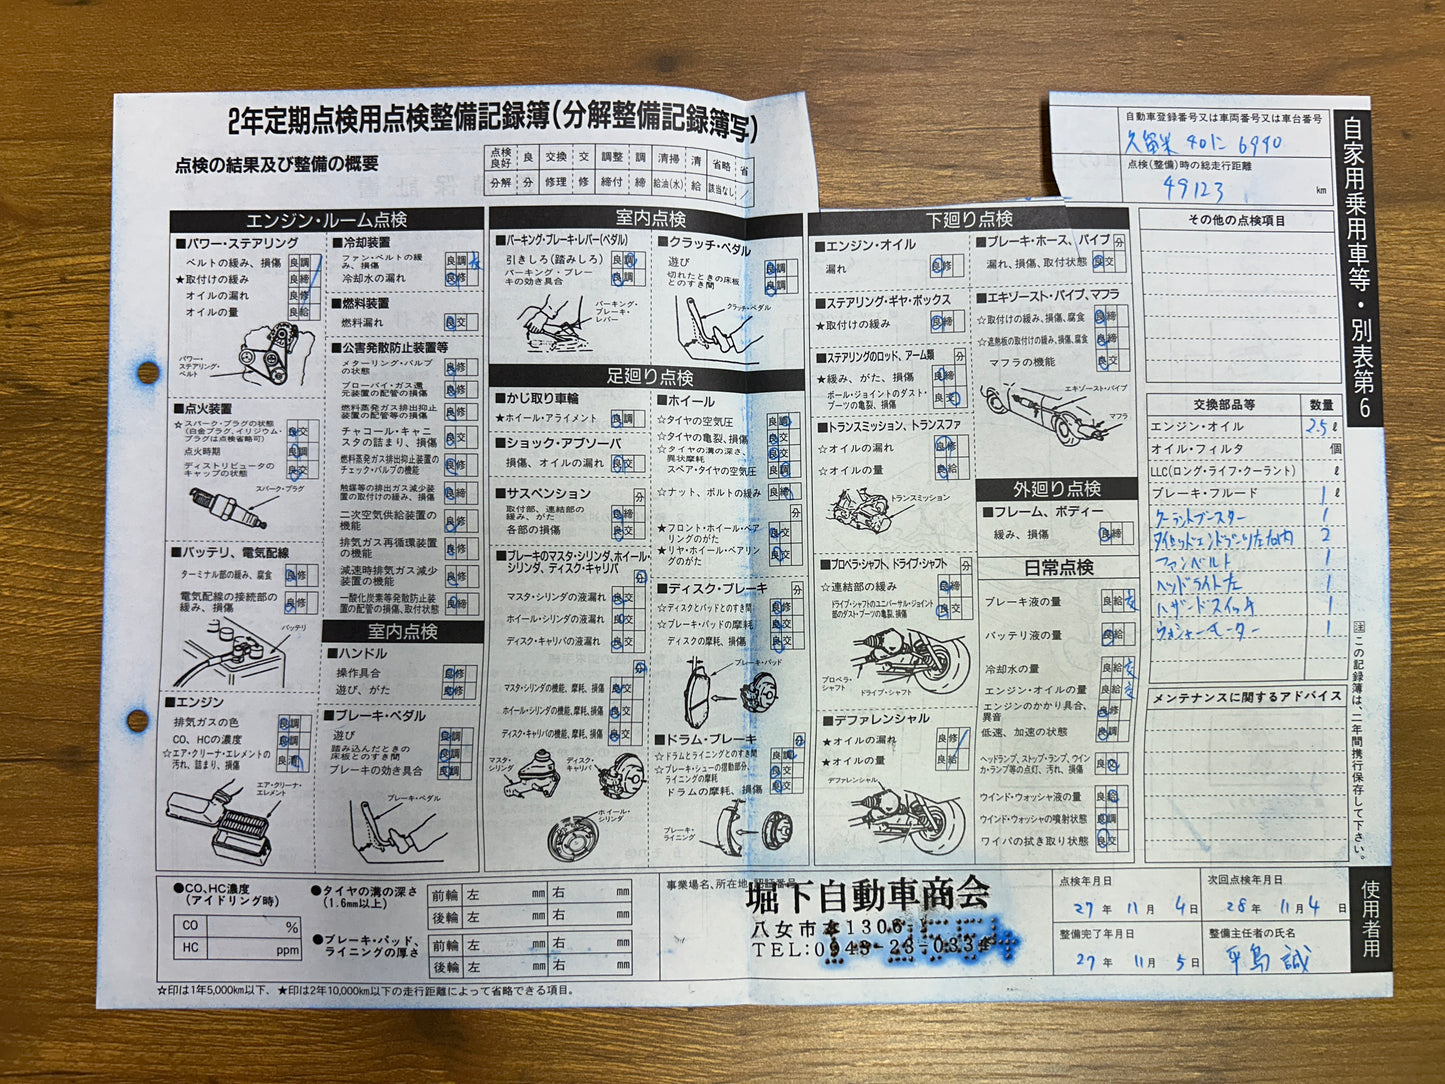 2年定期点検用点検整備記録簿(分解整備記録簿写)
点検の結果及び整備の概要
点検良好 良 交換 交 調整 調 清掃 清 省略 省
分解 分 修理 修 締付 締 給油(水) 給 該当なし /
自動車登録番号又は車両番号又は車台番号
久留米 40 に 6940
点検(整備)時の総走行距離
49123 km
自家用乗用車等・別表第6
エンジン・ルーム点検
■パワー・ステアリング
ベルトの緩み、損傷 良 調
★取付けの緩み 良 締
オイルの漏れ 良 修
オイルの量 良 給
パワー・ステアリング・ベルト
■点火装置
☆スパーク・プラグの状態
(白金プラグ、イリジウム・プラグは点検省略可) 良 交
点火時期 良 調
ディストリビュータの
キャップの状態 良 交
スパーク・プラグ
■バッテリ、電気配線
ターミナル部の緩み、腐食 良 修
電気配線の接続部の
緩み、損傷 良 修
バッテリ
■エンジン
排気ガスの色 良 調
CO、HCの濃度 良 調
☆エア・クリーナ・エレメントの
汚れ、詰まり、損傷 良 清
エア・クリーナ・エレメント
■冷却装置
ファン・ベルトの緩み、損傷 良 調 交
冷却水の漏れ 良 修
■燃料装置
燃料漏れ 良 交
■公害発散防止装置等
メターリング・バルブ
の状態 良 修
ブローバイ・ガス還
元装置の配管の損傷 良 修
燃料蒸発ガス排出抑止
装置の配管等の損傷 良 修
チャコール・キャニ
スタの詰まり、損傷 良 交
燃料蒸発ガス排出抑止装置の
チェック・バルブの機能 良 修
触媒等の排出ガス減少装
置の取付けの緩み、損傷 良 締
二次空気供給装置の
機能 良 修
排気ガス再循環装置
の機能 良 修
減速時排気ガス減少
装置の機能 良 修
一酸化炭素等発散防止装
置の配管の損傷、取付状態 良 締
室内点検
■ハンドル
操作具合 良 修
遊び、がた 良 修
■ブレーキ・ペダル
遊び 良 調
踏み込んだときの
床板とのすき間 良 調
ブレーキの効き具合 良 調
ブレーキ・ペダル
室内点検
■パーキング・ブレーキ・レバー(ペダル)
引きしろ(踏みしろ) 良 調
パーキング・ブレー
キの効き具合 良 調
パーキング・ブレーキ・レバー
■クラッチ・ペダル
遊び 良 調
切れたときの床板
とのすき間 良 調
クラッチ・ペダル
足廻り点検
■かじ取り車輪
★ホイール・アライメント 良 調
■ショック・アブソーバ
損傷、オイルの漏れ 良 交
■サスペンション 分
取付部、連結部の
緩み、がた 良 締
各部の損傷 良 交
■ブレーキのマスタ・シリンダ、ホイール・
シリンダ、ディスク・キャリパ 分
マスタ・シリンダの液漏れ 良 交
ホイール・シリンダの液漏れ 良 交
ディスク・キャリパの液漏れ 良 交
分
マスタ・シリンダの機能、摩耗、損傷 良 交
ホイール・シリンダの機能、摩耗、損傷 良 交
ディスク・キャリパの機能、摩耗、損傷 良 交
マスタ・シリンダ
ディスク・キャリパ
ホイール・シリンダ
■ホイール
☆タイヤの空気圧 良 調
☆タイヤの亀裂、損傷 良 交
☆タイヤの溝の深さ、
異状摩耗 良 調
スペア・タイヤの空気圧 良 調
☆ナット、ボルトの緩み 良 締
分
★フロント・ホイール・ベア
リングのがた 良 交
★リヤ・ホイール・ベアリン
グのがた 良 交
■ディスク・ブレーキ 分
☆ディスクとパッドとのすき間 良 修
☆ブレーキ・パッドの摩耗 良 交
ディスクの摩耗、損傷 良 交
ブレーキ・パッド
■ドラム・ブレーキ 分
☆ドラムとライニングとのすき間 良 調
☆ブレーキ・シューの摺動部分、
ライニングの摩耗 良 交
ドラムの摩耗、損傷 良 交
ブレーキ・ライニング
下廻り点検
■エンジン・オイル
漏れ 良 修
■ステアリング・ギヤ・ボックス
★取付けの緩み 良 締
■ステアリングのロッド、アーム類 分
★緩み、がた、損傷 良 締
ボール・ジョイントのダスト・
ブーツの亀裂、損傷 良 交
■トランスミッション、トランスファ
☆オイルの漏れ 良 修
☆オイルの量 良 給
トランスミッション
■プロペラ・シャフト、ドライブ・シャフト 分
☆連結部の緩み 良 締
ドライブ・シャフトのユニバーサル・ジョイント
部のダスト・ブーツの亀裂、損傷 良 交
プロペラ・シャフト
ドライブ・シャフト
■デファレンシャル
★オイルの漏れ 良 修
★オイルの量 良 給
デファレンシャル
■ブレーキ・ホース、パイプ 分
漏れ、損傷、取付状態 良 交
■エキゾースト・パイプ、マフラ
☆取付けの緩み、損傷、腐食 良 締
☆遮熱板の取付けの緩み、損傷、腐食 良 締
マフラの機能 良 交
エキゾースト・パイプ
マフラ
外廻り点検
■フレーム、ボディー
緩み、損傷 良 締
日常点検
ブレーキ液の量 良 給 交
バッテリ液の量 良 給
冷却水の量 良 給 交
エンジン・オイルの量 良 給 交
エンジンのかかり具合、
異音 良 修
低速、加速の状態 良 調
ヘッドランプ、ストップ・ランプ、ウイン
カ・ランプ等の点灯、汚れ、損傷 良 交
ウインド・ウォッシャ液の量 良 給
ウインド・ウォッシャの噴射状態 良 調
ワイパの拭き取り状態 良 交
その他の点検項目
交換部品等 数量
エンジン・オイル 2.5 ℓ
オイル・フィルタ 個
LLC(ロング・ライフ・クーラント) ℓ
ブレーキ・フルード 1 ℓ
クーラントブースター 1
タイロッドエンドブーツ左右内 2
ファンベルト 1
ヘッドライト左 1
ハザードスイッチ 1
ウォシャーモーター 1
メンテナンスに関するアドバイス
注 この記録簿は、二年間携行保存して下さい。
使用者用
●CO、HC濃度
(アイドリング時)
CO %
HC ppm
●タイヤの溝の深さ
(1.6mm以上)
前輪 左 mm 右 mm
後輪 左 mm 右 mm
●ブレーキ・パッド、
ライニングの厚さ
前輪 左 mm 右 mm
後輪 左 mm 右 mm
事業場名、所在地、認証番号
堀下自動車商会
八女市本1306
TEL:0943-23-033
点検年月日
27年 11月 4日
次回点検年月日
28年 11月 4日
整備完了年月日
27年 11月 5日
整備主任者の氏名
平島 誠
☆印は1年5,000km以下、★印は2年10,000km以下の走行距離によって省略できる項目。